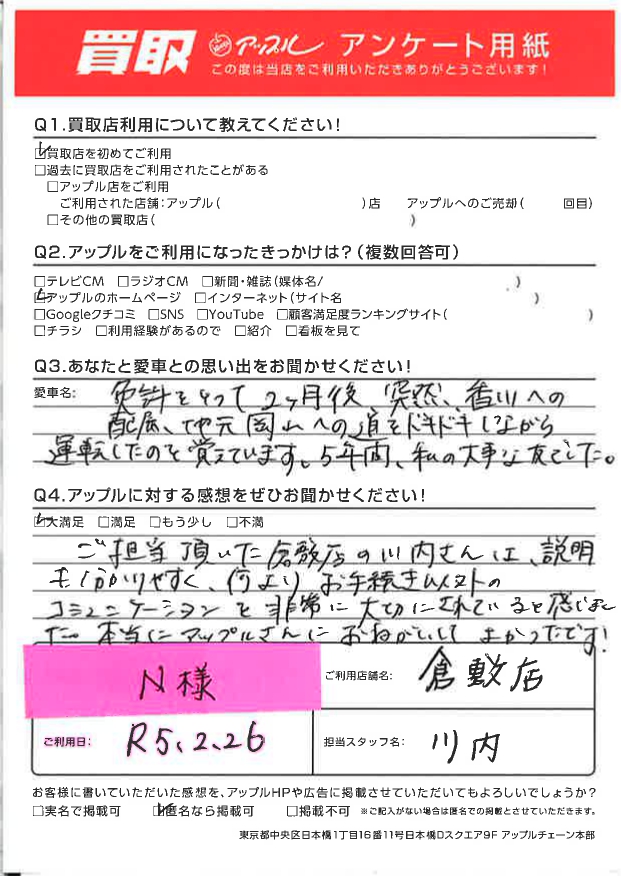 買取 アップル アンケート用紙
この度は当店をご利用いただきありがとうございます！
Q1.買取店利用について教えてください！
☑買取店を初めてご利用
□過去に買取店をご利用されたことがある
□アップル店をご利用
ご利用された店舗：アップル（ ）店 アップルへのご売却（ 回目）
□その他の買取店（ ）
Q2.アップルをご利用になったきっかけは？（複数回答可）
□テレビCM □ラジオCM □新聞・雑誌（媒体名/ ）
☑アップルのホームページ □インターネット（サイト名 ）
□Googleクチコミ □SNS □YouTube □顧客満足度ランキングサイト（ ）
□チラシ □利用経験があるので □紹介 □看板を見て
Q3.あなたと愛車との思い出をお聞かせください！
愛車名： 免許をとって2ヶ月後、突然、香川への
配属、地元岡山への道をドキドキしながら
運転したのを覚えています。5年間、私の大事な友でした。
Q4.アップルに対する感想をぜひお聞かせください！
☑大満足 □満足 □もう少し □不満
ご担当頂いた倉敷店の川内さんは、説明
も分かりやすく、何よりお手続き以外の
コミュニケーションを非常に大切にされていると感じまし
た。本当にアップルさんにおねがいしてよかったです！
N様
ご利用店舗名： 倉敷店
ご利用日： R5、2、26
担当スタッフ名： 川内
お客様に書いていただいた感想を、アップルHPや広告に掲載させていただいてもよろしいでしょうか？
□実名で掲載可 ☑匿名なら掲載可 □掲載不可 ※ご記入がない場合は匿名での掲載とさせていただきます。
東京都中央区日本橋1丁目16番11号日本橋Dスクエア9F アップルチェーン本部